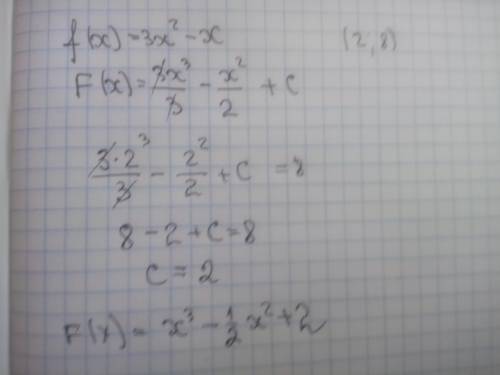 f(x)=3x²-x (2,8)
F(x)=3x³/3 - x²/2 + C
3·2³/3 - 2²/2 + C = 8
8-2+C=8
C=2
F(x)= x³ - 1/2 x² + 2